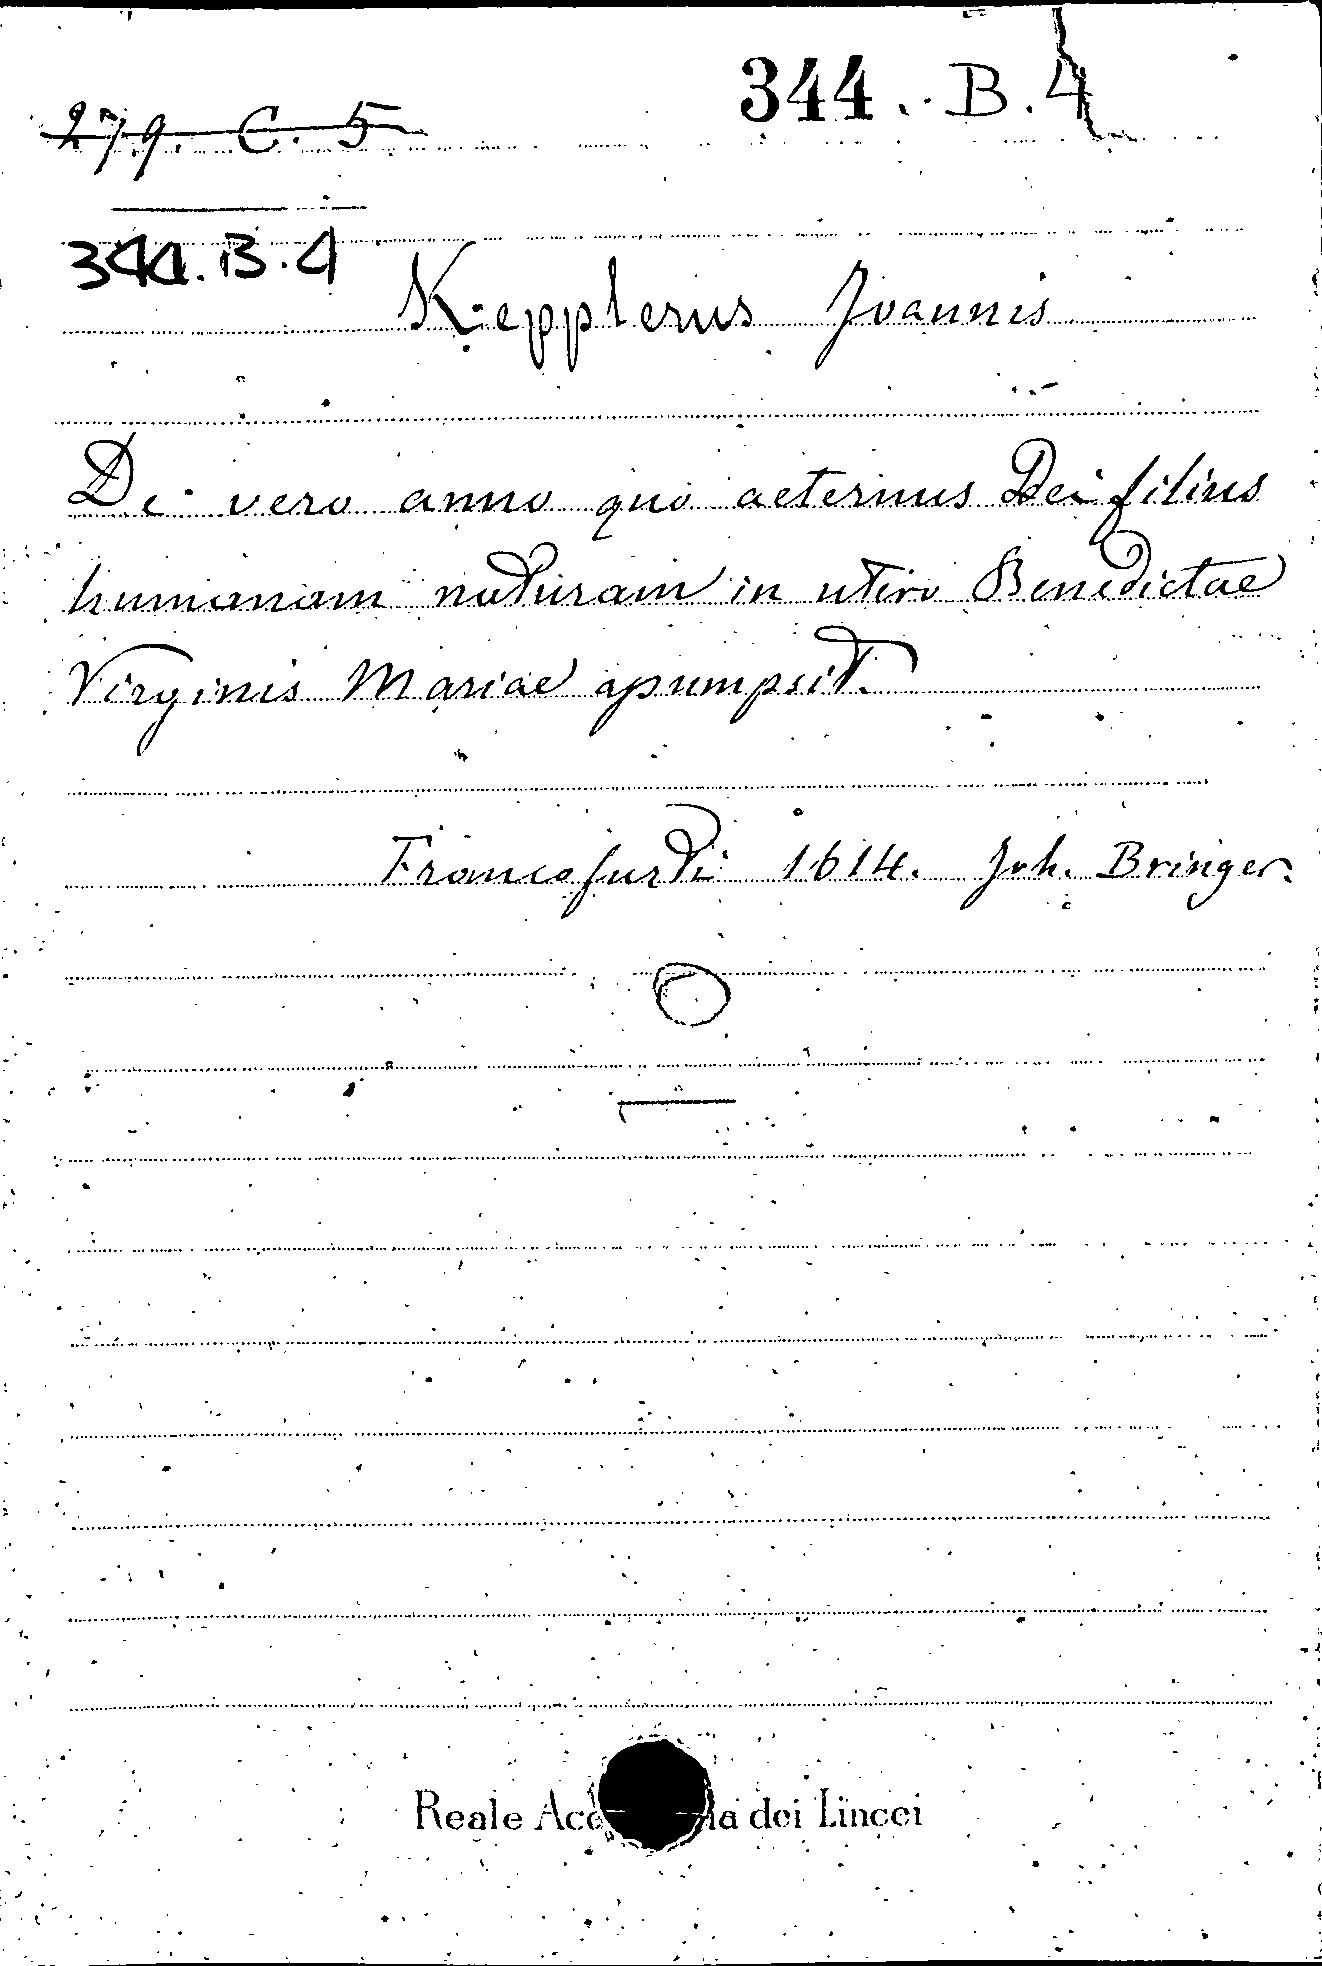 344. B. 4
279. C. 5
344. B. 4
Kepplerus Joannis
De vero anno quo aeternus Dei filius
humanam naturam in utero Benedictae
Virginis Mariae assumpsit.
Francofurti 1614. Joh. Bringer.
Reale Acc ia dei Lincei